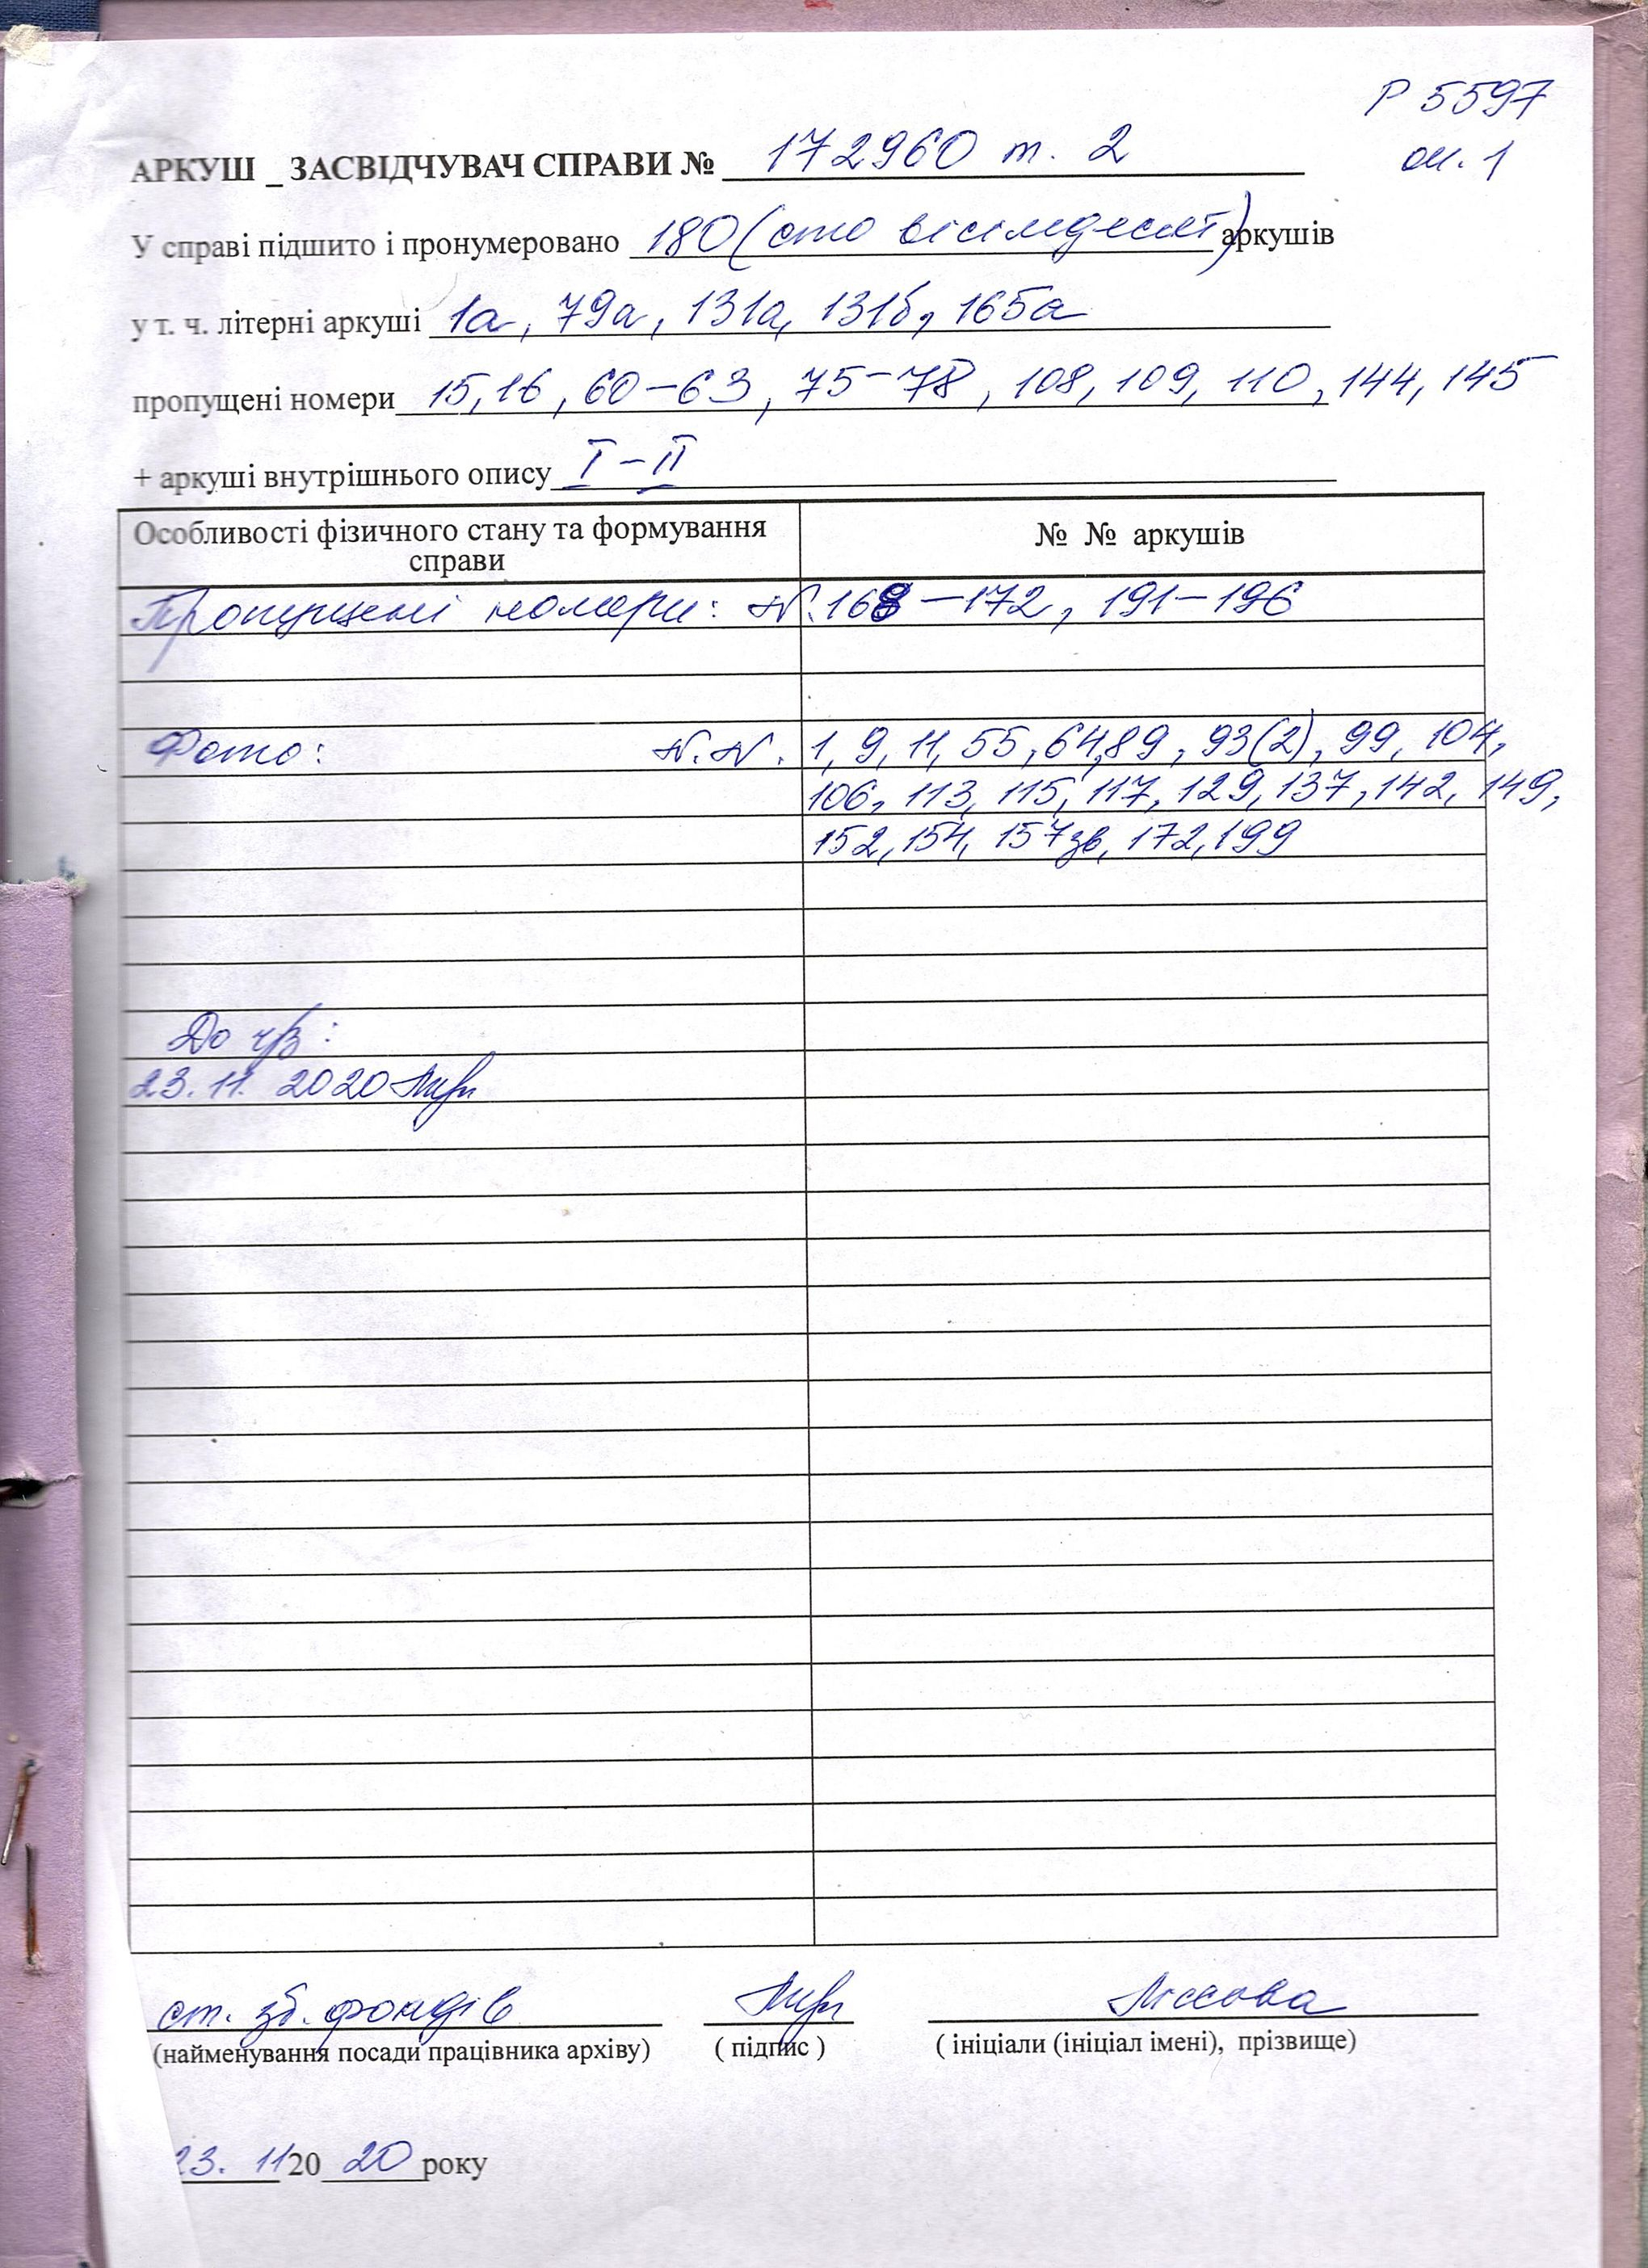 Р 5597
оп. 1
АРКУШ _ ЗАСВІДЧУВАЧ СПРАВИ № 172960 т. 2
У справі підшито і пронумеровано 180 (сто вісімдесят) аркушів
у т. ч. літерні аркуші 1а, 79а, 131а, 131б, 165а
пропущені номери 15, 16, 60-63, 75-78, 108, 109, 110, 144, 145
+ аркуші внутрішнього опису I-II
Особливості фізичного стану та формування справи
№ № аркушів
Пропущені номери: N. 168-172, 191-196
Фото: N.N. 1, 9, 11, 55, 64, 89, 93(2), 99, 104,
106, 113, 115, 117, 129, 137, 142, 149,
152, 154, 157зв, 172, 199
До ч/з:
23.11. 2020
ст. зб. фондів
(найменування посади працівника архіву) ( підпис ) ( ініціали (ініціал імені), прізвище)
23. 11 20 20 року